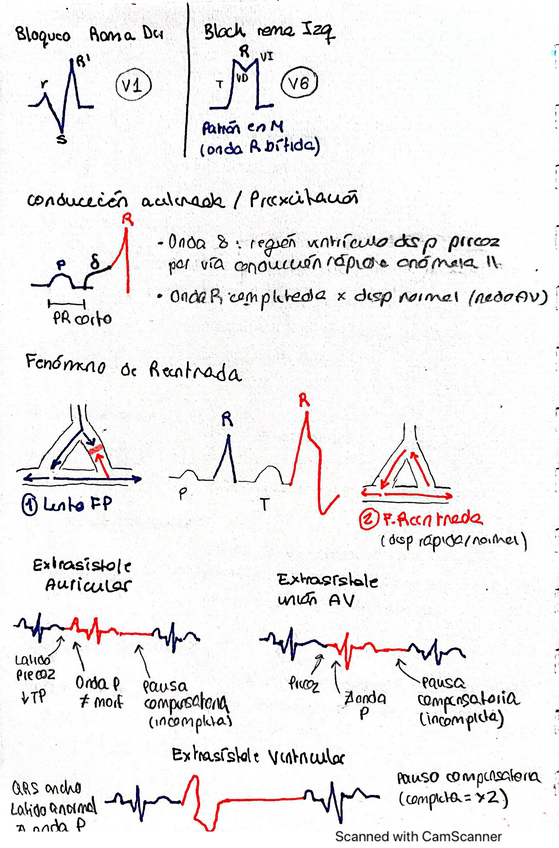 Bloqueo Rama Dcr
r
R'
S
V1
Block rama Izq
R
VI
T
VD
V6
Patrón en M
(onda R bífida)
conducción acelerada / Preexcitación
R
P
δ
PR corto
• Onda δ: región ventrículo desp precoz
por vía conducción rápida e anómala
• Onda R: completada x desp normal (nodo AV)
Fenómeno de Reentrada
① Lento FP
P
R
T
R
② F. Reentrada
(desp rápida/normal)
Extrasístole
Auricular
Latido
Precoz
↓TP
Onda P
≠ morf
Pausa
compensatoria
(incompleta)
Extrasístole
unión AV
Precoz
∄ onda
P
Pausa
compensatoria
(incompleta)
Extrasístole Ventricular
QRS ancho
Latido anormal
∄ onda P
Pausa compensatoria
(completa = x2)
Scanned with CamScanner